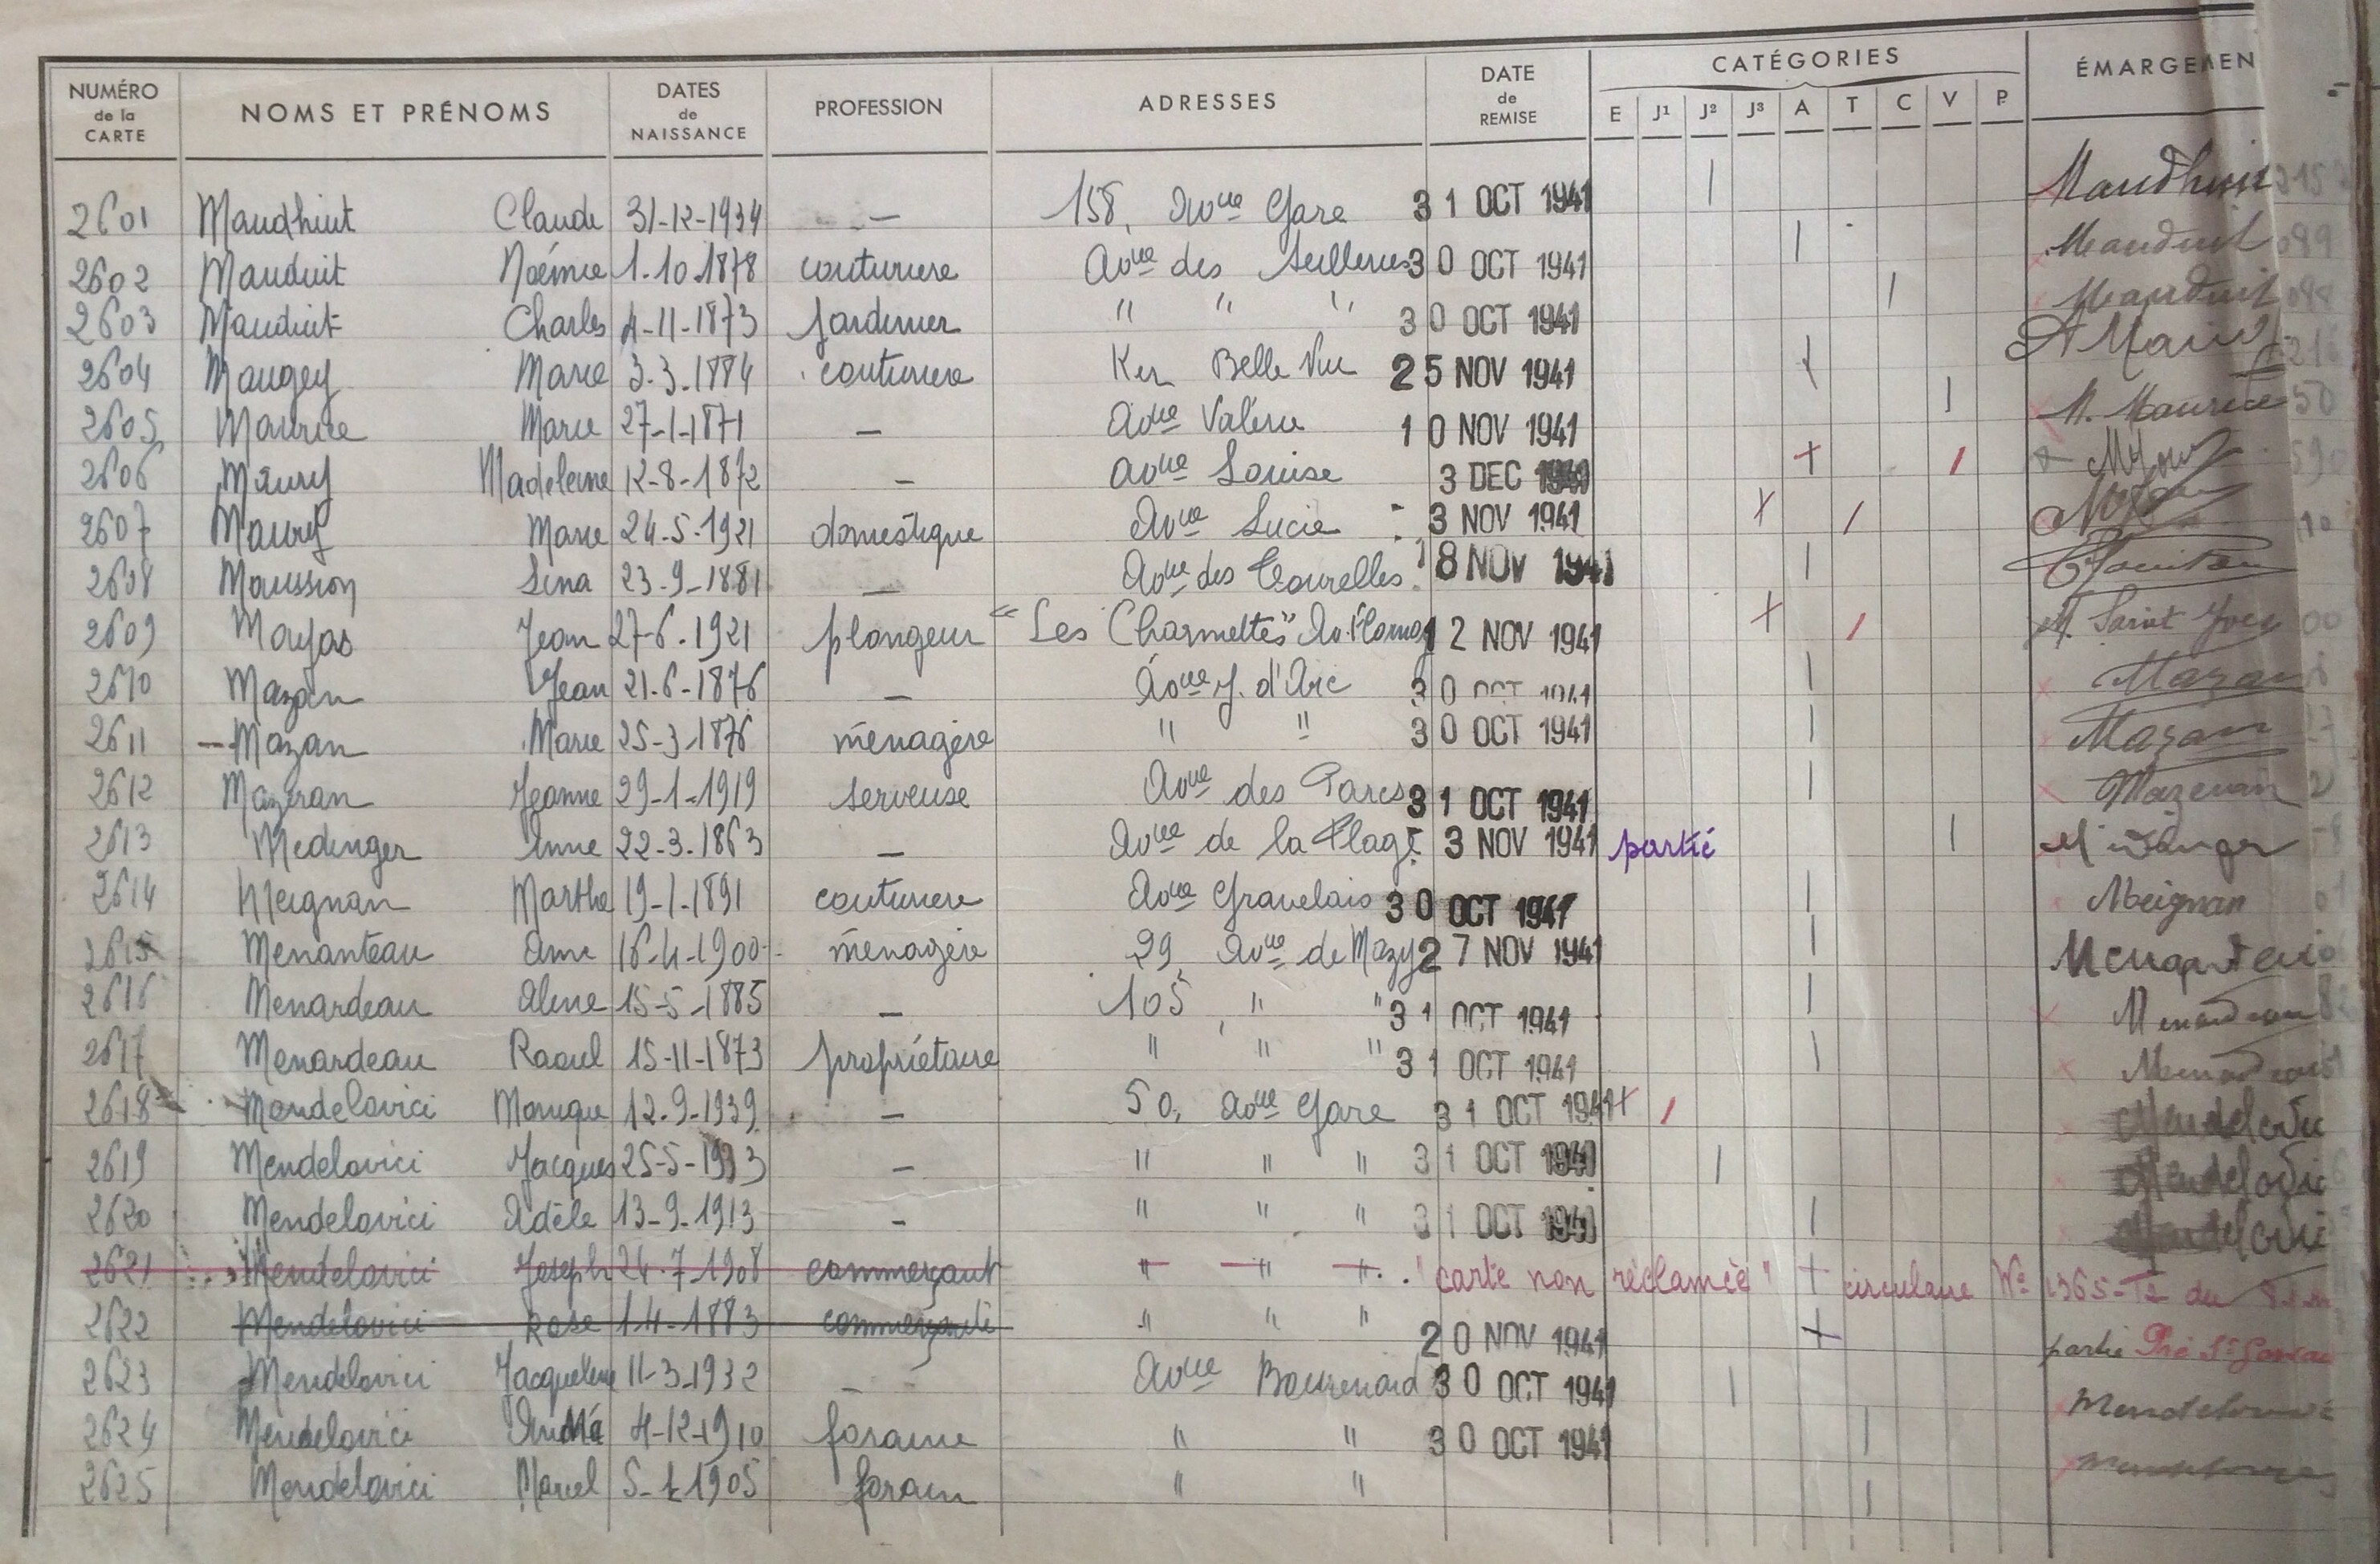 NUMÉRO de la CARTE NOMS ET PRÉNOMS DATES de NAISSANCE PROFESSION ADRESSES DATE de REMISE CATÉGORIES ÉMARGEMEN
E J1 J2 J3 A T C V P
2601 Maudhuit Claude 31-12-1934 — 158, Avnue Gare 31 OCT 1941 | Maudhuit
2602 Mauduit Noémie 1.10.1878 couturiere Avnue des 30 OCT 1941 | Mauduit
2603 Mauduit Charles 4-11-1873 jardinier " " " 30 OCT 1941 | Mauduit
2604 Maugey Marie 3.3.1884 couturiere Ker Belle Vue 25 NOV 1941 |
2605 Maurice Marie 27-1-1871 — Avnue Valérie 10 NOV 1941 | M. Maurice
2606 Maury Madeleine 12-8-1872 — Avnue Louise 3 DEC 1941 + /
2607 Maury Marie 24-5-1921 domestique Avnue Lucie 3 NOV 1941 + /
2608 Maussion Lina 23-9-1881 — Avnue des Tourelles 18 NOV 1941 |
2609 Mayas Jean 27-6-1921 plongeur "Les Charmettes" Av. 12 NOV 1941 + /
2610 Mazan Jean 21-6-1876 — Avnue J. d'Arc 30 OCT 1941 | Mazan
2611 — Mazan Marie 25-3-1876 ménagère " " 30 OCT 1941 | Mazan
2612 Mazeran Jeanne 29-1-1919 serveuse Avnue des Parcs 31 OCT 1941 | Mazeran
2613 Medinger Anne 22-3-1863 — Avnue de la Plage 3 NOV 1941 partie |
2614 Meignan Marthe 19-1-1891 couturiere Avnue Gravelais 30 OCT 1941 | Meignan
2615 Menanteau Anne 16-4-1900 ménagère 29 Avnue de Mazy 27 NOV 1941 | Menanteau
2616 Menardeau Aline 15-5-1885 — 105 " " 31 OCT 1941 | Menardeau
2617 Menardeau Raoul 15-11-1873 propriétaire " " " 31 OCT 1941 | Menardeau
2618 Mendelovici Monique 12-9-1939 — 50, Avnue Gare 31 OCT 1941 + / Mendelovici
2619 Mendelovici Jacques 25-5-1933 — " " " 31 OCT 1941 | Mendelovici
2620 Mendelovici Adèle 13-9-1913 — " " " 31 OCT 1941 | Mendelovici
2621 Mendelovici Joseph 24-7-1908 commerçant " " " "carte non réclamée" + circulaire No 1365-T2 du
2622 Mendelovici Rose 1.4-1883 commerçante " " " 20 NOV 1941 + partie
2623 Mendelovici Jacqueline 11-3-1932 — Avnue Bourenard 30 OCT 1941 | Mendelovici
2624 Mendelovici 4-12-1910 foraine " " 30 OCT 1941 |
2625 Mendelovici Marcel 5-1-1905 forain " " |